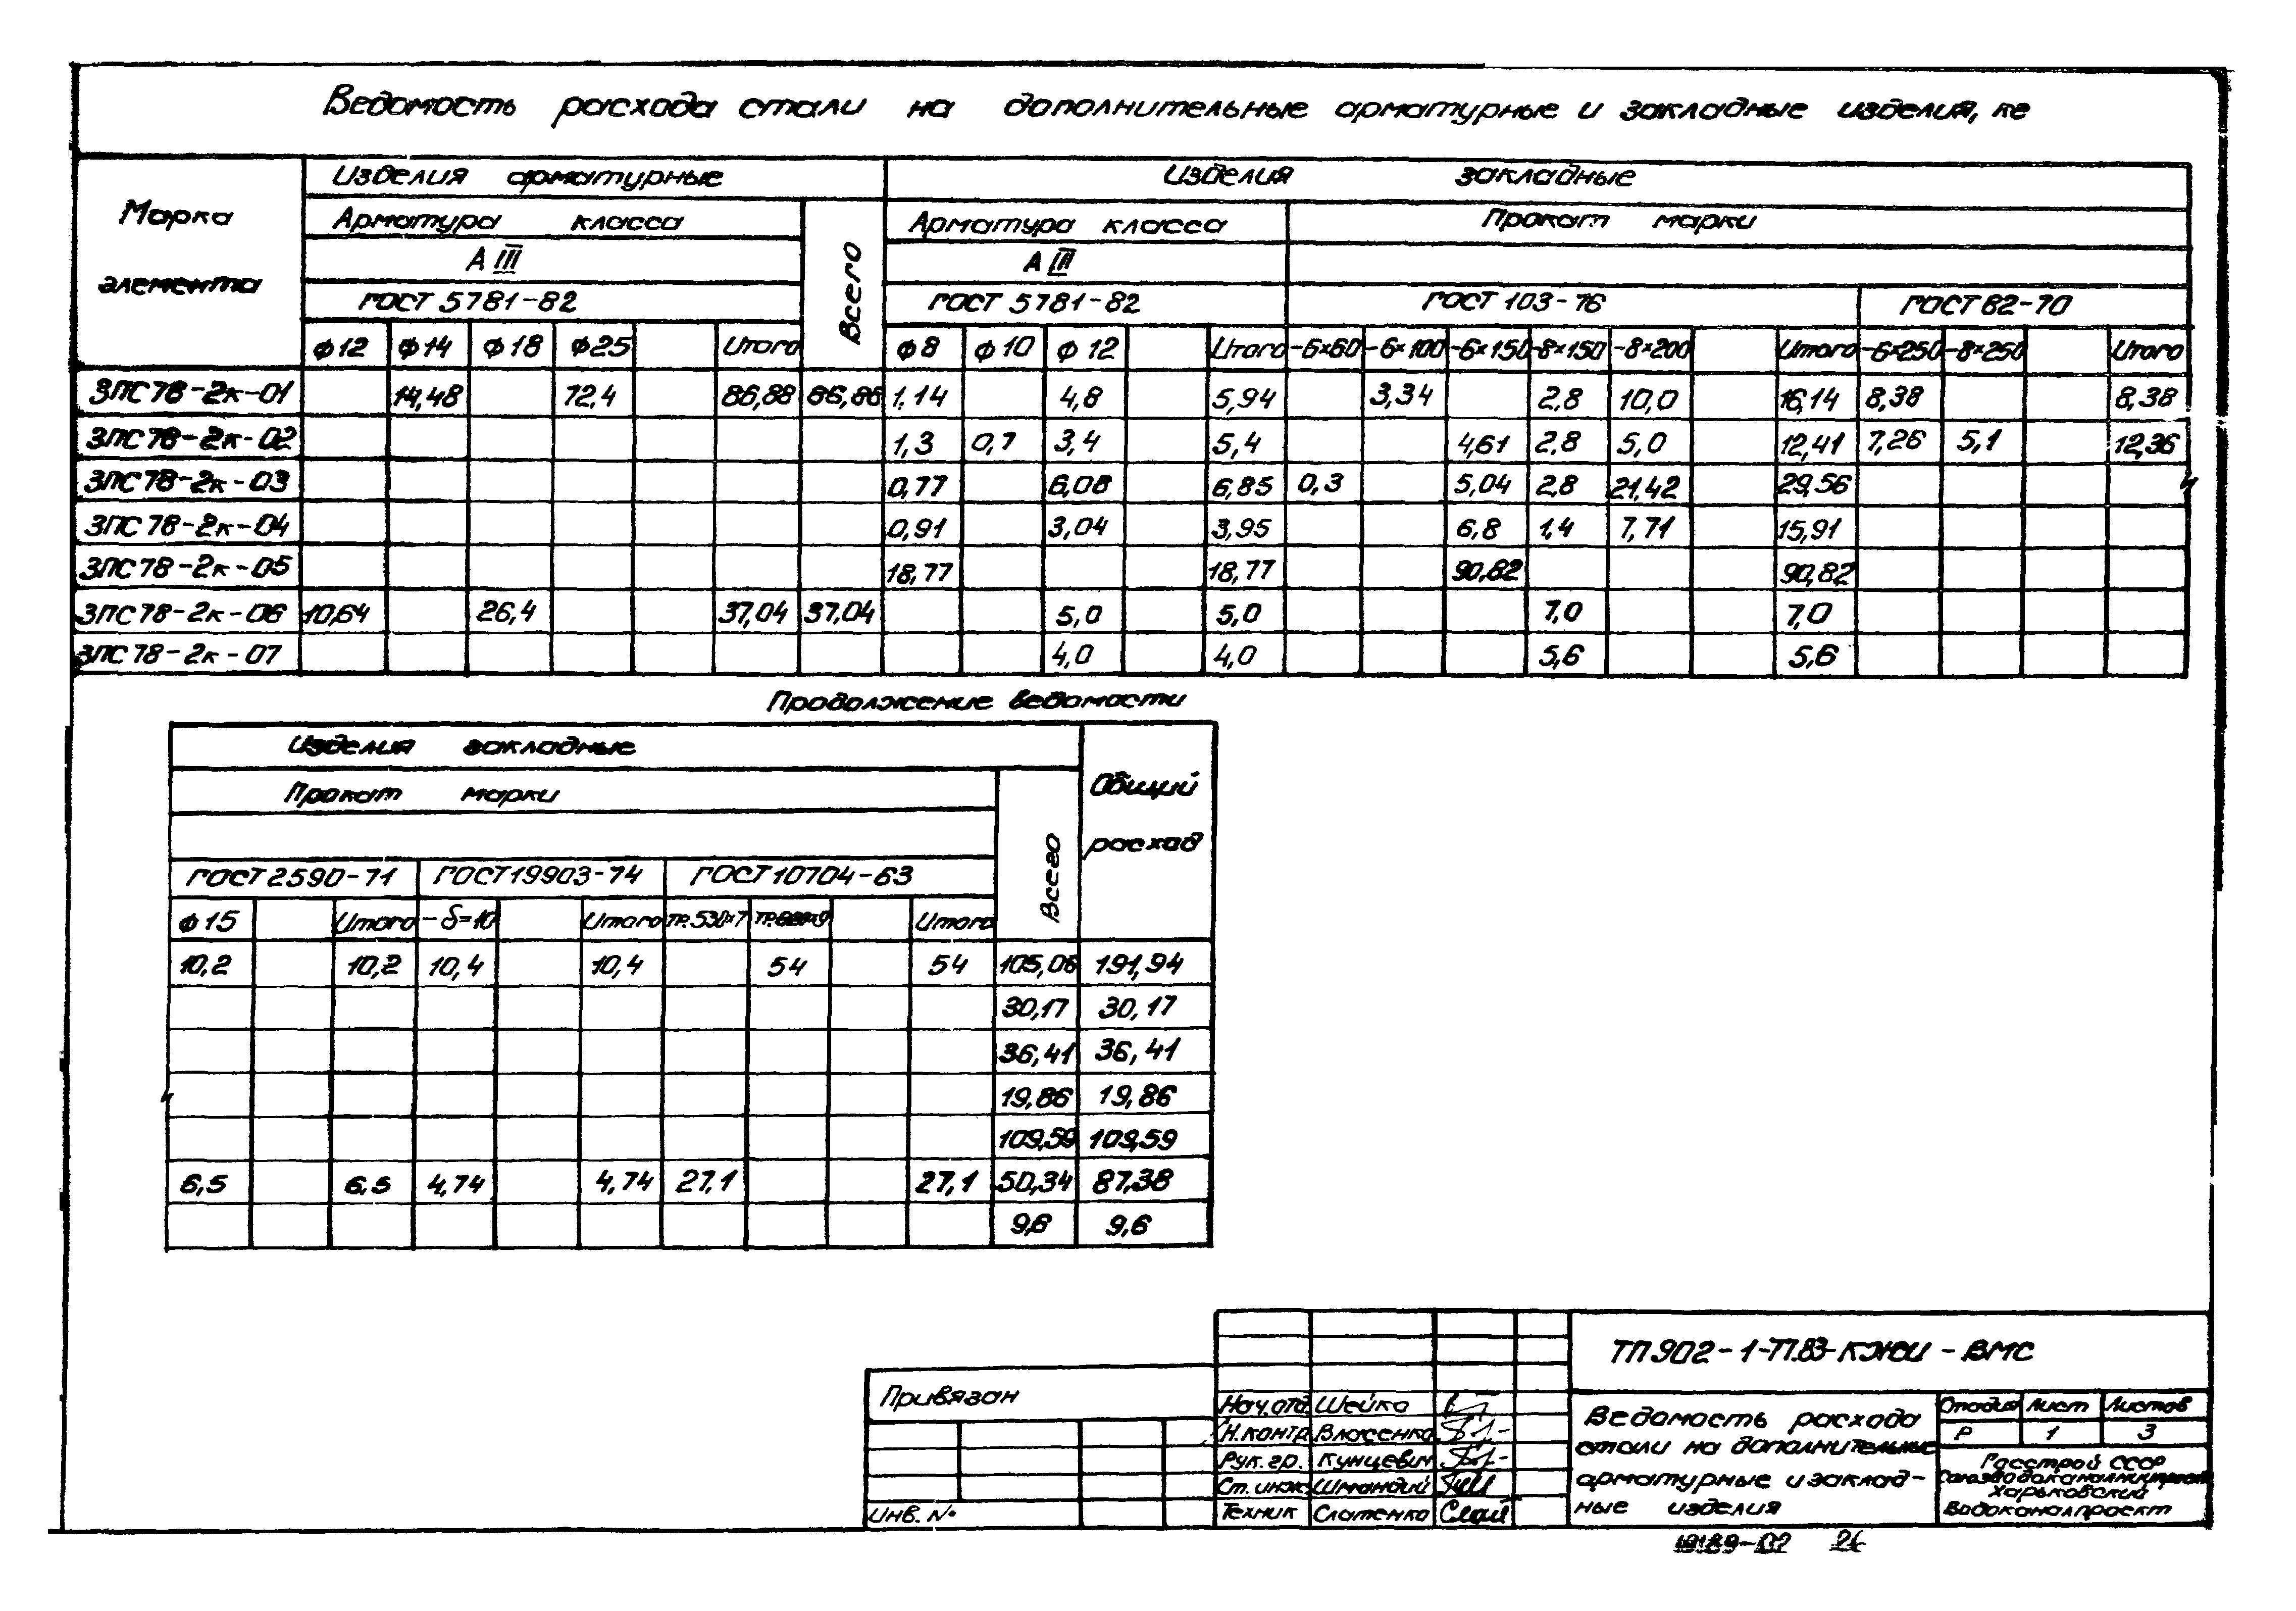 Ведомость расхода стали на дополнительные арматурные и закладные изделия, кг
Марка элемента
Изделия арматурные
Изделия закладные
Арматура класса
Всего
Арматура класса
Прокат марки
А III
А III
ГОСТ 5781-82
ГОСТ 5781-82
ГОСТ 103-76
ГОСТ 82-70
ф12 ф14 ф18 ф25 Итого ф8 ф10 ф12 Итого -6×60 -6×100 -6×150 -8×150 -8×200 Итого -6×250 -8×250 Итого
3ПС78-2к-01 14,48 72,4 86,88 86,88 1,14 4,8 5,94 3,34 2,8 10,0 16,14 8,38 8,38
3ПС78-2к-02 1,3 0,7 3,4 5,4 4,61 2,8 5,0 12,41 7,26 5,1 12,36
3ПС78-2к-03 0,77 6,08 6,85 0,3 5,04 2,8 21,42 29,56
3ПС78-2к-04 0,91 3,04 3,95 6,8 1,4 7,71 15,91
3ПС78-2к-05 18,77 18,77 90,82 90,82
3ПС78-2к-06 10,64 26,4 37,04 37,04 5,0 5,0 7,0 7,0
3ПС78-2к-07 4,0 4,0 5,6 5,6
Продолжение ведомости
Изделия закладные
Общий расход
Прокат марки
Всего
ГОСТ 2590-71 ГОСТ19903-74 ГОСТ10704-63
ф15 Итого -δ=10 Итого тр.530×7 Итого
10,2 10,2 10,4 10,4 54 54 105,06 191,94
30,17 30,17
36,41 36,41
19,86 19,86
109,59 109,59
6,5 6,5 4,74 4,74 27,1 27,1 50,34 87,38
9,6 9,6
ТП902-1-77.83-КЖИ-ВМС
Привязан
Инв. №
Нач.отд. Шейко
Н.контр. Власенко
Рук. гр. Кунцевич
Ст. инж. Шмандий
Техник Слатенко
Ведомость расхода
стали на дополнительные
арматурные и заклад-
ные изделия
Стадия Лист Листов
Р 1 3
Госстрой СССР
Союзводоканалниипроект
Харьковский
Водоканалпроект
19189-02